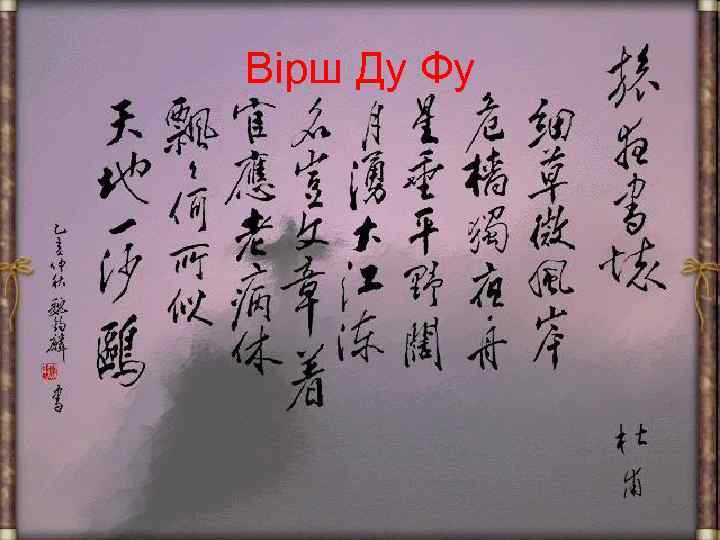 Вірш Ду Фу
旅夜書懷
杜甫
細草微風岸
危檣獨夜舟
星垂平野闊
月湧大江流
名豈文章着
官應老病休
飄々何所似
天地一沙鷗
乙亥仲秋 書